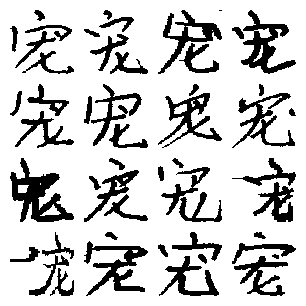 宠宠宠宠
宠宠宠宠
宠宠宠宠
宠宠宠宠